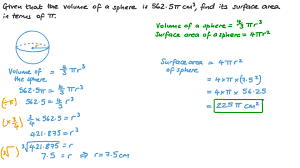 Given that the volume of a sphere is 562.5π cm³, find its surface area
in terms of π.
Volume of a sphere = 4/3 πr³
Surface area of a sphere = 4πr²
Volume of
the sphere = 4/3 πr³
562.5π = 4/3 πr³
(÷π) 562.5 = 4/3 r³
(×3/4) 3/4 × 562.5 = r³
421.875 = r³
(∛) ∛421.875 = r
7.5 = r ⇒ r = 7.5cm
Surface area
of sphere = 4πr²
= 4×π×(7.5²)
= 4×π × 56.25
= 225π cm²